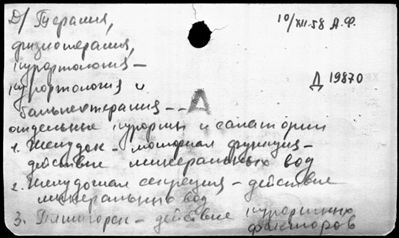 Д/ Терапия,
10/XII.58 А.Ф.
физиотерапия,
курортология –
Д 19870
курортология и
бальнеотерапия – –
А
отдельные курорты и санатории
1. Желудок – моторная функция –
действие минеральных вод
2. Желудочная секреция – действие
минеральных вод
3. Пятигорск – действие курортных
факторов